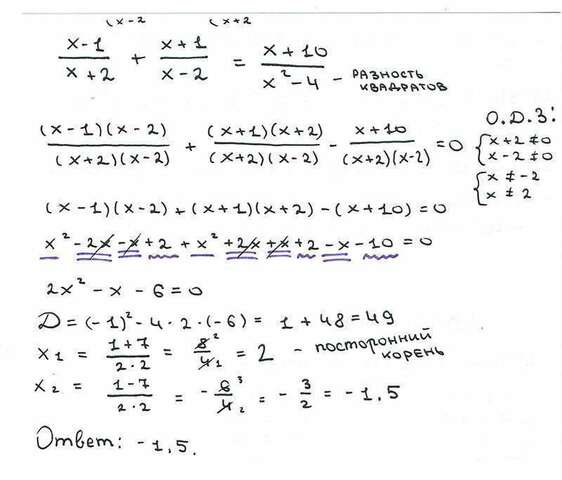 (x-2 (x+2
x-1/x+2 + x+1/x-2 = x+10/x²-4 - РАЗНОСТЬ КВАДРАТОВ
О.Д.З:
(x-1)(x-2)/(x+2)(x-2) + (x+1)(x+2)/(x+2)(x-2) - x+10/(x+2)(x-2) = 0
{x+2≠0
x-2≠0
{x≠-2
x≠2
(x-1)(x-2)+(x+1)(x+2)-(x+10)=0
x²-2x-x+2+x²+2x+x+2-x-10=0
2x²-x-6=0
D=(-1)²-4·2·(-6)= 1+48=49
x1 = 1+7/2·2 = 8²/4₁ = 2 - посторонний корень
x2 = 1-7/2·2 = -6³/4₂ = -3/2 = -1,5
Ответ: -1,5.